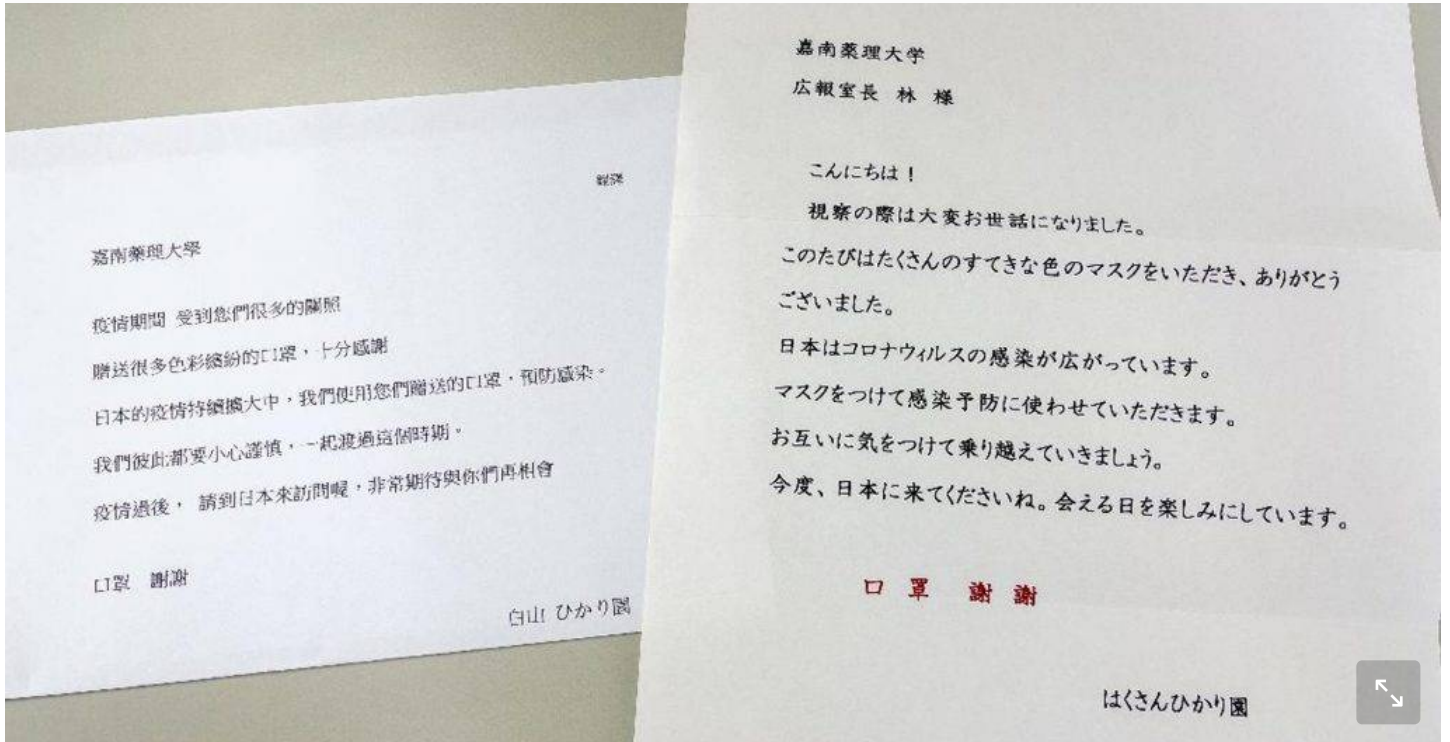 嘉南藥理大學
疫情期間 受到您們很多的關照
贈送很多色彩繽紛的口罩，十分感謝
日本的疫情持續擴大中，我們使用您們贈送的口罩，預防感染。
我們彼此都要小心謹慎，一起渡過這個時期。
疫情過後， 請到日本來訪問喔，非常期待與你們再相會
口罩 謝謝
白山 ひかり園
嘉南薬理大学
広報室長 林 様
こんにちは！
視察の際は大変お世話になりました。
このたびはたくさんのすてきな色のマスクをいただき、ありがとう
ございました。
日本はコロナウィルスの感染が広がっています。
マスクをつけて感染予防に使わせていただきます。
お互いに気をつけて乗り越えていきましょう。
今度、日本に来てくださいね。会える日を楽しみにしています。
口罩 謝謝
はくさんひかり園